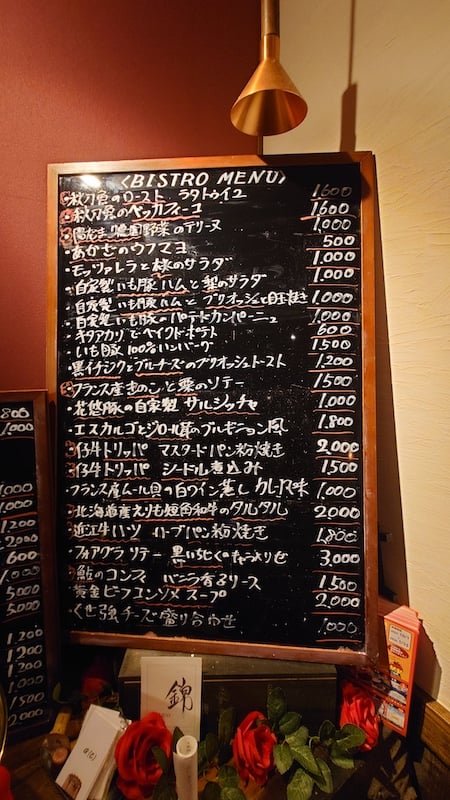 <BISTRO MENU>
秋刀魚のロースト ラタトゥイユ 1,600
秋刀魚のベッカフィーコ 1,600
陽だまり農園野菜のテリーヌ 1,000
・あかむのウフマヨ 500
・モッツァレラと桃のサラダ 1,000
・自家製いも豚ハムと梨のサラダ 1,000
・自家製いも豚ハムと ブリオッシュと目玉焼き 1,000
・自家製いも豚のパテドカンパーニュ 1,000
・キタアカリでベイクドポテト 600
・いも豚100%ハンバーグ 1500
・黒イチジクとブルーチーズのブリオッシュトースト 1,200
フランス産きのこと栗のソテー 1500
・花悠豚の自家製 サルシッチャ 1,000
・エスカルゴとジロール茸のブルギニョン風 1,800
・仔牛トリッパ マスタードパン粉焼き 2,000
・仔牛トリッパ シードル煮込み 1,500
・フランス産ムール貝の白ワイン蒸し カレー味 1,000
・北海道産えりも短角和牛のタルタル 2000
・近江牛ハツ ハーブパン粉焼き 1,800
・フォアグラソテー 黒いちじく 3,000
・鮎のコンフィ バニラ香るソース 1,500
・黄金ビーフコンソメスープ 2,000
・くせ強チーズ盛り合わせ 1,000
800
1,000
1,000
1,000
1200
2000
600
1,000
5000
5,000
1,200
1200
1,200
1,000
1500
2,000
錦